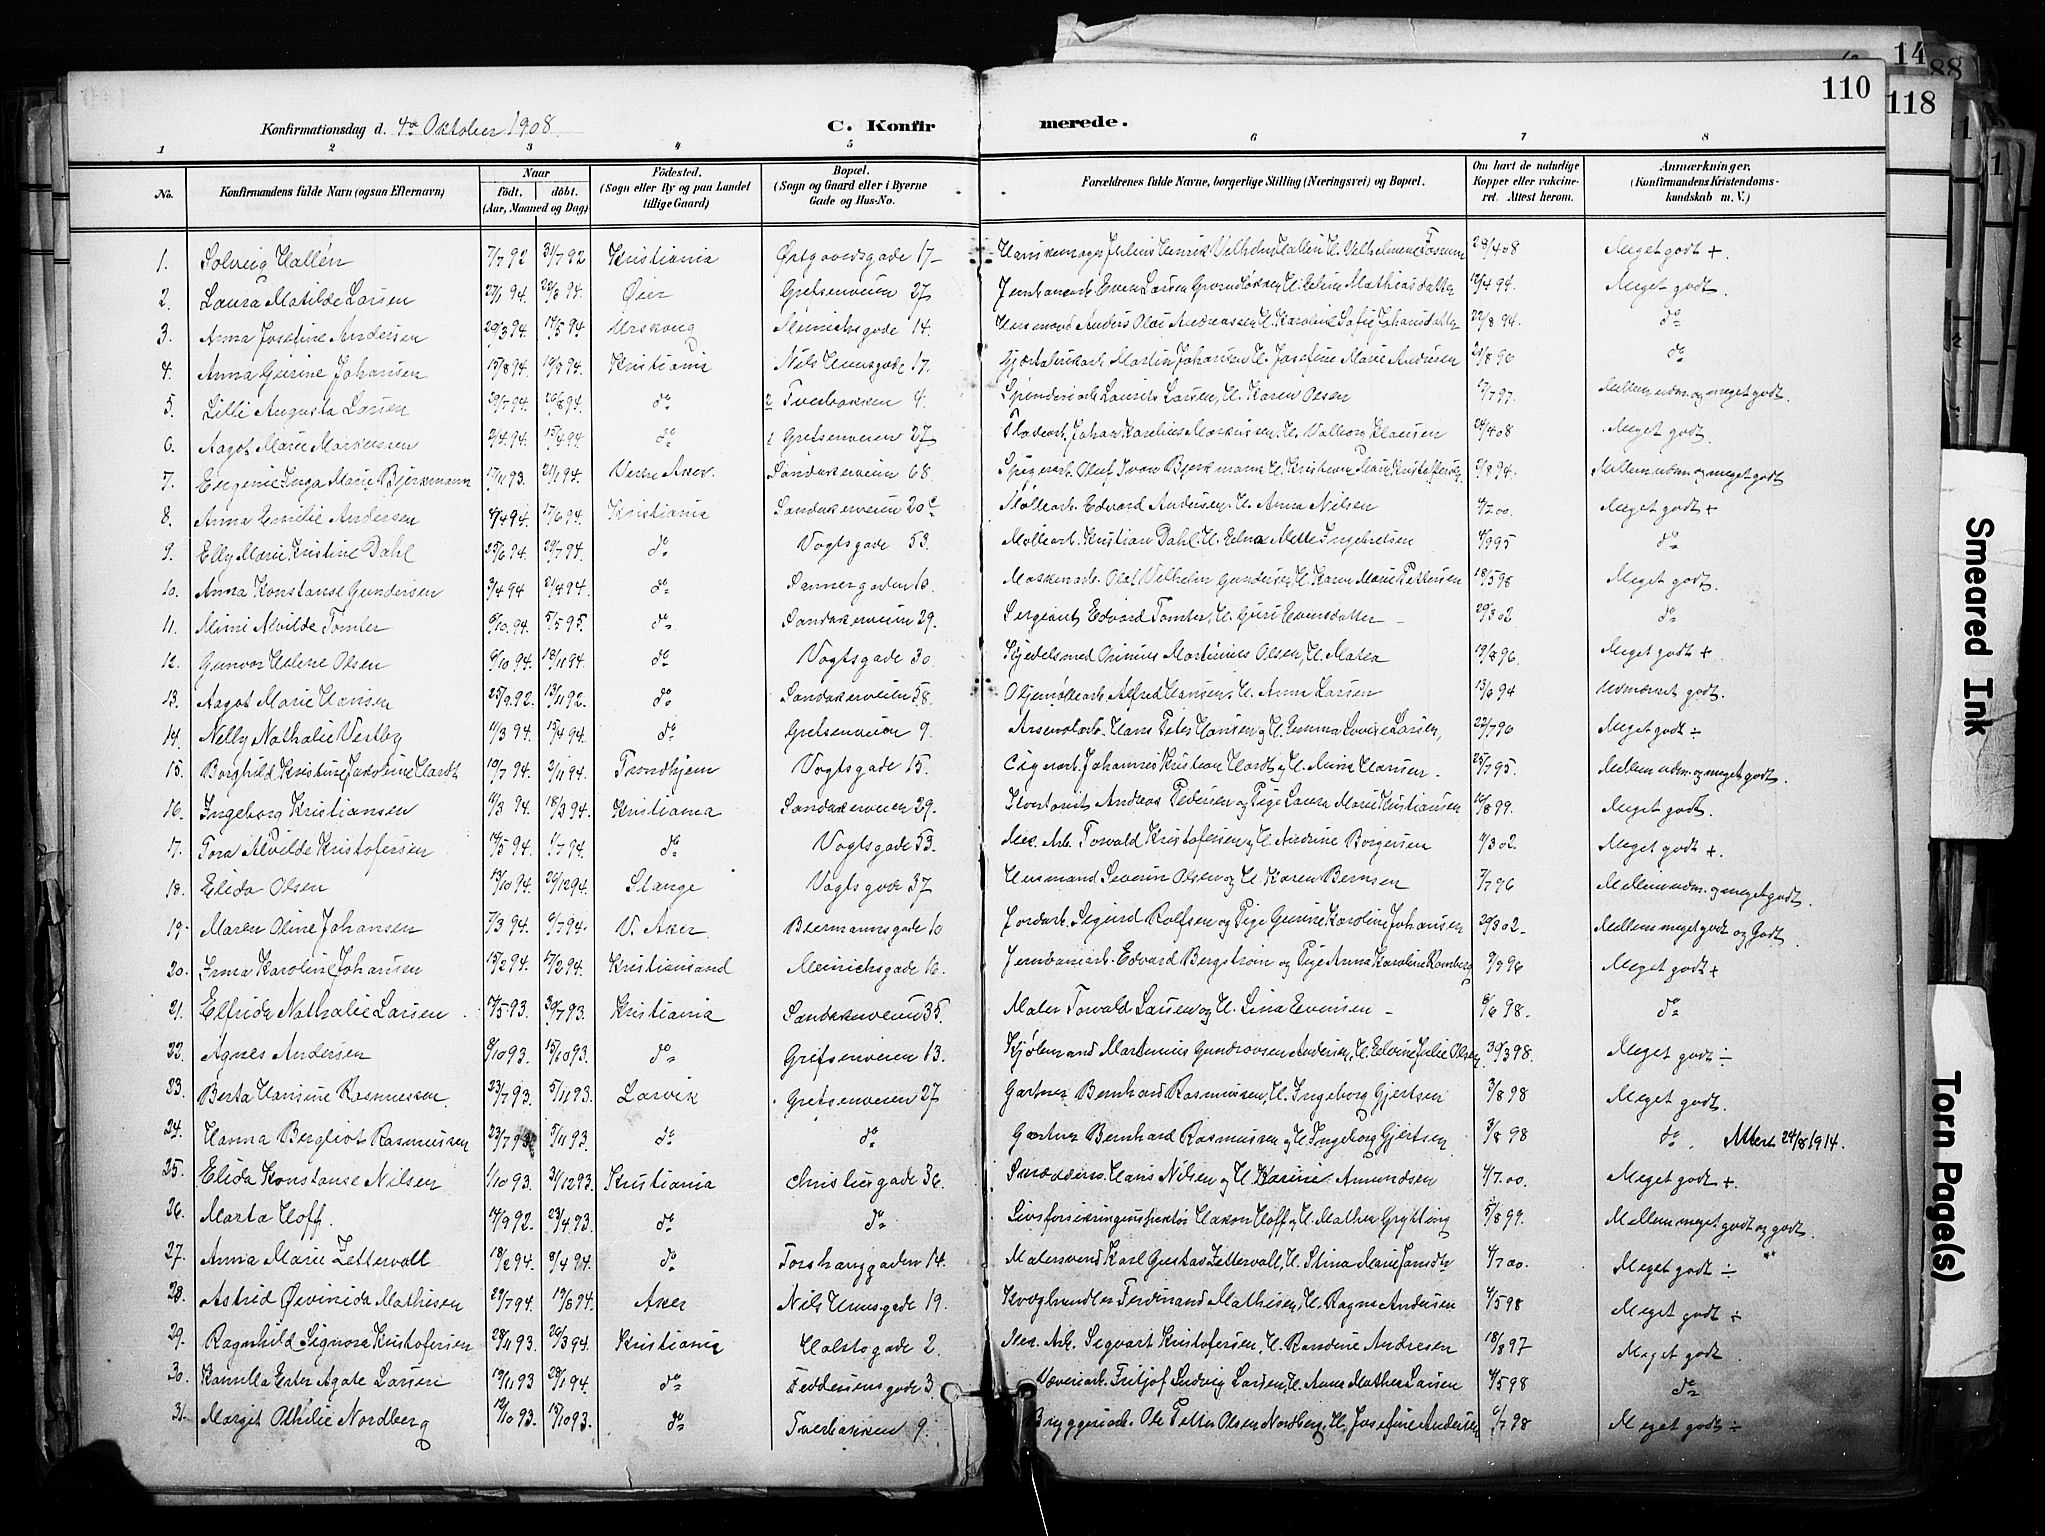 14
88
118
110
Konfirmationsdag d. 4de Oktober 1908
C. Konfirmerede.
1 2 3 4 5 6 7 8
No. Konfirmandens fulde Navn (ogsaa Efternavn) Naar født. døbt. (Aar, Maaned og Dag) Fødested. (Sogn eller By og paa Landet tillige Gaard) Bopæl. (Sogn og Gaard eller i Byerne Gade og Hus-No. Forældrenes fulde Navne, borgerlige Stilling (Næringsvei) og Bopæl. Om havt de naturlige Kopper eller vakcineret. Attest herom. Anmærkninger. (Konfirmandens Kristendomskundskab m. V.)
1. Solveig Hallén 7/7 92 31/7 92 Kristiania Østgaardsgade 17 Hanskemager Julius Henrik Vilhelm Hallén, H. Vilhelmine 28/4 08 Meget godt +.
2. Laura Matilde Larsen 27/1 94. 28/8 94. Øier Grefsenveien 27 Jernbanearb. Even Larsen, H. Eline Mathiasdatter 12/4 94. Meget godt.
3. Anna Josefine Andersen 29/3 94. 17/5 94 Urskoug Meinichsgade 14. Husmand Anders Olai Andreassen, H. Karoline Sofie Johansdatter 22/8 94. do
4. Anna Gurine Johansen 15/8 94. 19/9 94. Kristiania Nils Huusgade 17. Martin Johansen, H. Josefine Marie Andresen 21/8 90 do
5. Lilli Augusta Larsen 29/7 94. 26/8 94. do Tverbakken 4. Spinderiarb. Laurits Larsen, H. Karen Olsen 17/7 97. Mellem udm. og meget godt.
6. Aagot Marie Markussen 2/4 94. 15/4 94 do Grefsenveien 27 Johan Karelius Markussen, H. Valborg Klausen 24/4 08 Meget godt.
7. Eugenie Inga Marie Bjerkmann 17/11 93. 21/1 94. Vestre Aker. Sandakerveien 68 Spigerarb. Oluf Ivar Bjerkmann, H. Kristiane Marie 2/8 94. Mellem udm. og meget godt
8. Anna Emilie Andersen 8/4 94. 17/6 94. Kristiania Sandakerveien 20c Møllearb. Edvard Andersen, H. Anna Nilsen 4/7 00. Meget godt +
9. Elly Marie Kristine Dahl 25/6 94. 29/7 94. do Vogtsgade 53. Møllearb. Kristian Dahl, H. Edna Mette Ingebretsen 4/9 95 do
10. Anna Konstanse Gundersen 3/4 94 21/4 94. do Sannergaden 10. Maskinarb. Olaf Vilhelm Gundersen, H. Karen Marie Pettersen 18/5 98 Meget godt.
11. Mimi Alvilde Tomter 6/10. 94. 5/5 95. do Sandakerveien 29. Sergeant Edvard Tomter, H. Guri Evensdatter 29/3 02 do
12. Gunvor Helene Olsen 6/10 94. 18/11 94. do Vogtsgade 30 Kjedelsmed Martinius Olsen, H. Matea 19/8 96. Meget godt +
13. Aagot Marie Hansen 25/9 92. 13/11 92. do Sandakerveien 58. Oljemøllearb. Alfred Hansen, H. Anna Larsen 13/6 94 Udmærket godt.
14. Nelly Nathalie Vestby 11/3 94. 15/4 94. do Grefsenveien 9. Arsenalarb. Hans Peter Hansen og H. Emma Lovise Larsen, 22/7 90 Meget godt ÷
15. Borghild Kristine Jakobine Hardt 19/7 94. 2/11 94. Trondhjem Vogtsgade 15. Cigararb. Johannes Kristian Hardt og H. Anna Hansen. 25/7 95. Mellem udm. og meget godt.
16. Ingeborg Kristiansen 11/3 94. 18/3 94. Kristiania Sandakerveien 29. Andreas Pedersen og Pige Laura Marie Kristiansen 16/8 99. Meget godt.
17. Tora Alvilde Kristofersen 14/5 94. 1/7 94. do Vogtsgade 53. Mek. Arb. Torvald Kristofersen og H. Andrine Borgersen 4/3 02. Meget godt +.
18. Elida Olsen 13/10 94. 26/12 94. Stange Vogtsgade 37 Husmand Severin Olsen og H. Karen Bernsen 7/7 96 Mellem udm. og meget godt.
19. Maren Oline Johansen 7/3 94. 6/7 94. V. Aker. Biermannsgade 10 Jordarb. Sigurd Rolfsen og Pige Gunine Karoline Johansen 20/3 02. Mellem meget godt og Godt.
20. Irma Karoline Johansen 13/2 94. 17/2 94. Kristiansand Meinichsgade 16. Jernbanearb. Edvard Bergstrøm og Pige Anna Karoline Romberg 9/9 96 Meget godt +
21. Elfrida Nathalie Larsen 14/5 93. 30/7 93. Kristiania Sandakerveien 35. Maler Torvald Larsen og H. Lina Evensen 8/6 98. do
22. Agnes Andersen 8/10 93. 15/10 93. do Grefsenveien 13. Kjøbmand Martinius Gundrosen Andersen, H. Edvine Julie Olsen 30/3 98. Meget godt ÷
23. Berta Hansine Rasmussen 23/7 93. 5/11 93. Larvik Grefsenveien 27 Gartner Bernhard Rasmussen, H. Ingeborg Gjertsen 3/8 98 Meget godt.
24. Hanna Bergliot Rasmussen 23/7 93 5/11 93. do do Gartner Bernhard Rasmussen og H. Ingeborg Gjertsen 3/8 98 do. Attest 24/8 1914.
25. Elida Konstanse Nilsen 1/10 93. 31/12 93. Kristiania Christiesgade 36 Hans Nilsen og H. Karine Amundsen 4/7 00. Meget godt +.
26. Marta Hoff. 14/9 92. 23/4 93. do do Livsforsikringsinspektør Hakon Hoff og H. Mathea Grytting 5/8 99. Mellem meget godt og godt.
27. Anna Marie Zettervall 18/2 94. 8/4 94. do Torshauggaden 14. Malersvend Karl Gustav Zettervall, H. Stina Marie Jansdtr 4/7 00. Meget godt ÷
28. Astrid Øivinida Mathisen 29/7 94. 19/8 94. Aker Nils Huusgade 19. Kvæghandler Ferdinand Mathisen, H. Ragna Andersen 4/5 98 Meget godt +
29. Ragnhild Signora Kristofersen 28/11 93. 26/3 94. Kristiania Holstsgade 2. Mek. Arb. Segvart Kristofersen, H. Randine Andresen 18/8 97 Meget godt.
30. Kamilla Ester Agate Larsen 19/11 93 29/1 94. do Feddersensgade 3. Væveriarb. Fritjof Ludvig Larsen, H. Anna Mathea Larsen 4/5 98 do
31. Margit Othilie Nordberg 12/10 93. 15/10 93. do Tverbakken 9. Bryggeriarb. Ole Petter Olsen Nordberg, H. Josefine Andersen 6/7 98 Meget godt ÷
Smeared Ink
Torn Page(s)